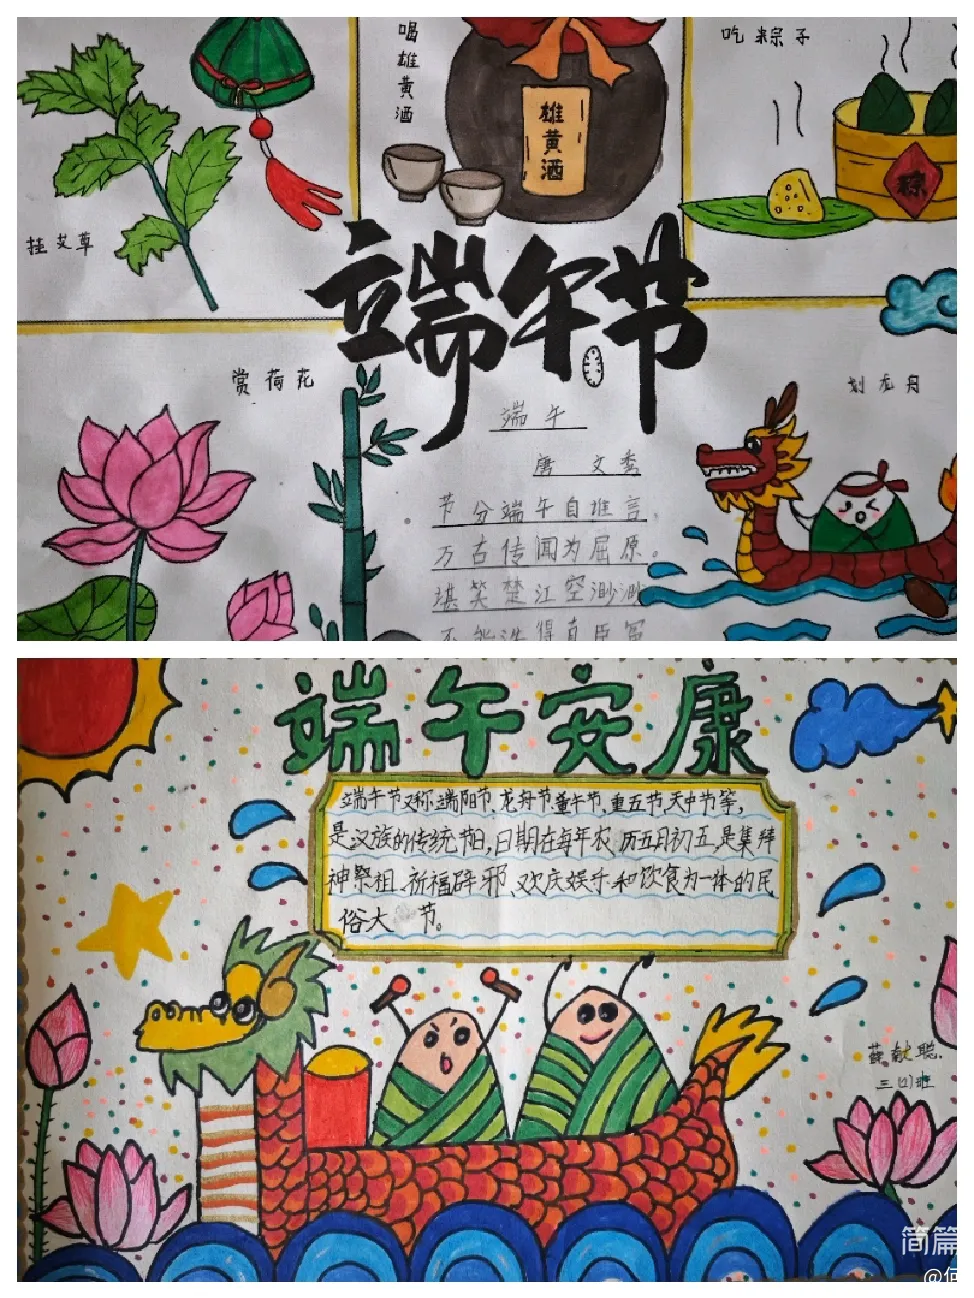 喝雄黄酒
雄黄酒
吃粽子
粽
挂艾草
端午节
赏荷花
划龙舟
端午
唐 文秀
节分端午自谁言，
万古传闻为屈原。
堪笑楚江空渺渺
端午安康
端午节又称端阳节、龙舟节、重午节、重五节、天中节等，
是汉族的传统节日，日期在每年农历五月初五，是集拜
神祭祖、祈福辟邪、欢庆娱乐和饮食为一体的民
俗大 节。
三(2)班
简篇